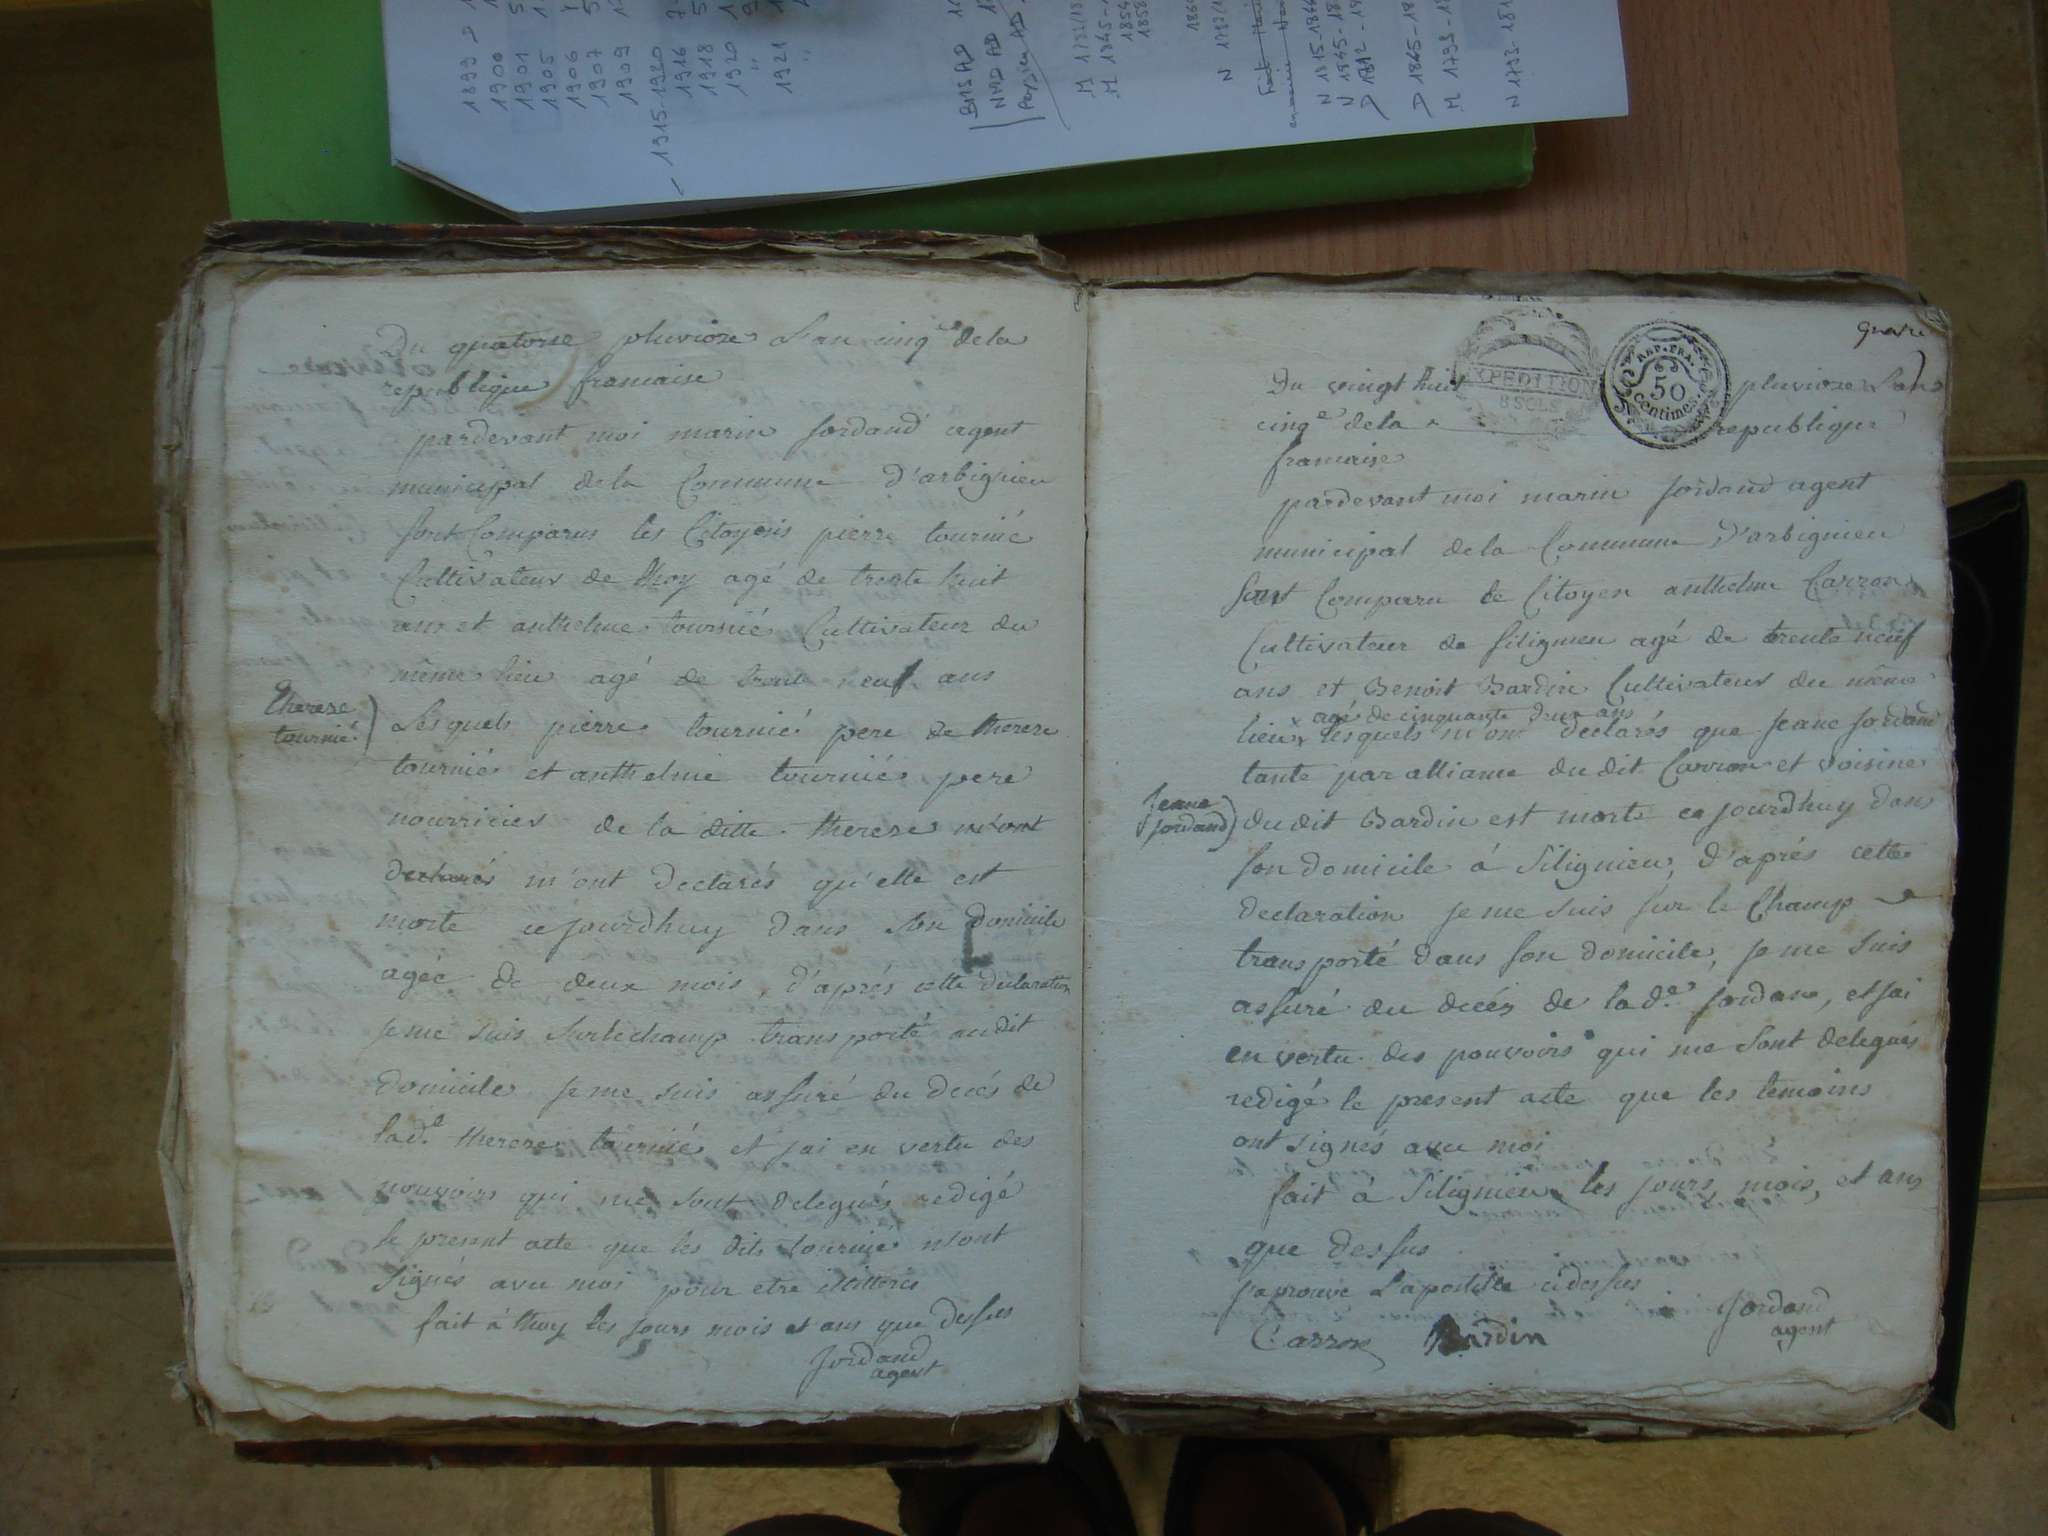 1899
1900
1901
1905
1906
1907
1909
1915-1920
1916
1918
1920
1921
BMS AD
NMD AD
M 1845-
1854
1858
N
N 1815-1844
D 1845-18
M 1793-18
N 1793-181
Du quatorse pluvioze L'an cinq.e de la
republique francaise
pardevant moi marin Jordand agent
municipal de la Commune d'arbignieu
sont Comparus les Citoyens pierre tournié
Cultivateur de thoy agé de trente huit
ans et anthelme tournié Cultivateur du
même lieu agé de trente neuf ans
therese
tournié
Lesquels pierre tournié pere de therese
tournié et anthelme tournié pere
nourricier de la ditte therese m'ont
declarés m'ont declarés qu'elle est
morte ce jourdhuy dans son domicile
agée de deux mois, d'aprés cette declaration
je me suis sur le champ transporté audit
domicile je me suis assuré du decés de
lad.e therese tournié et jai en vertu des
pouvoirs qui me sont delegués redigé
le present acte que les dits tournié n'ont
signés avec moi pour etre illitteres
fait à thoy les jours mois et ans que dessus
Jordand
agent
quatre
EXPEDITION
8 SOLS
REP. FRA.
50
centimes
Du vingt huit pluvioze L'an
cinq.e de la republique
francaise
pardevant moi marin Jordand agent
municipal de la Commune D'arbignieu
sont Comparu le Citoyen anthelme Carron
Cultivateur de Silignieu agé de trente neuf
ans et Benoit Bardin Cultivateur du même
agé de cinquante deux ans
lieu x lesquels m'ont declarés que Jeane Jordand
tante par alliance du dit Carron et voisine
Jeane
Jordand
du dit Bardin est morte ce jourdhuy dans
son domicile à Silignieu, D'aprés cette
declaration je me suis sur le Champ
transporté dans son domicile, je me suis
assuré du decés de lad.e Jordand, et jai
en vertu des pouvoirs qui me sont delegués
redigé le present acte que les temoins
ont signés avec moi
fait à Silignieu les jours, mois, et ans
que dessus
japrouve L'apostille cidessus
Jordand
agent
Carron Bardin